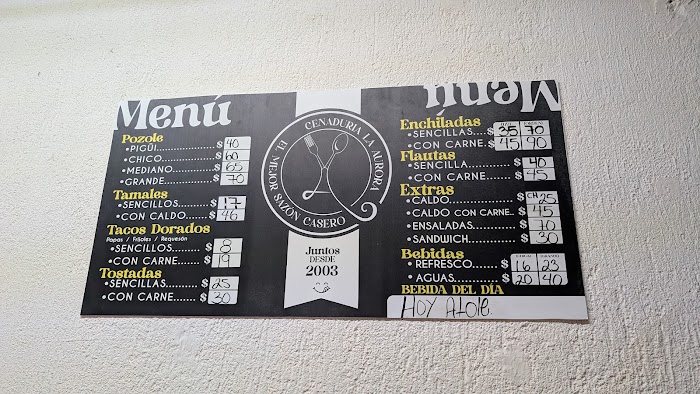 Menú
Pozole
•PIGÜI............... $ 40
•CHICO.............. $ 60
•MEDIANO......... $ 65
•GRANDE........... $ 70
Tamales
•SENCILLOS....... $ 17
•CON CALDO...... $ 46
Tacos Dorados
Papas / Frijoles / Requesón
•SENCILLOS........ $ 8
•CON CARNE....... $ 19
Tostadas
•SENCILLAS........ $ 25
•CON CARNE....... $ 30
CENADURIA LA AURORA
EL MEJOR SAZÓN CASERO
Juntos
DESDE
2003
Menú
Enchiladas
•SENCILLAS.... $ 35 70
•CON CARNE... $ 45 90
Flautas
•SENCILLA........ $ 40
•CON CARNE..... $ 45
Extras
•CALDO............ $ CH 25
•CALDO CON CARNE.. $ 45
•ENSALADAS....... $ 70
•SANDWICH........ $ 30
Bebidas
•REFRESCO...... $ 16 23
•AGUAS........... $ 20 40
BEBIDA DEL DÍA
HOY Atole.